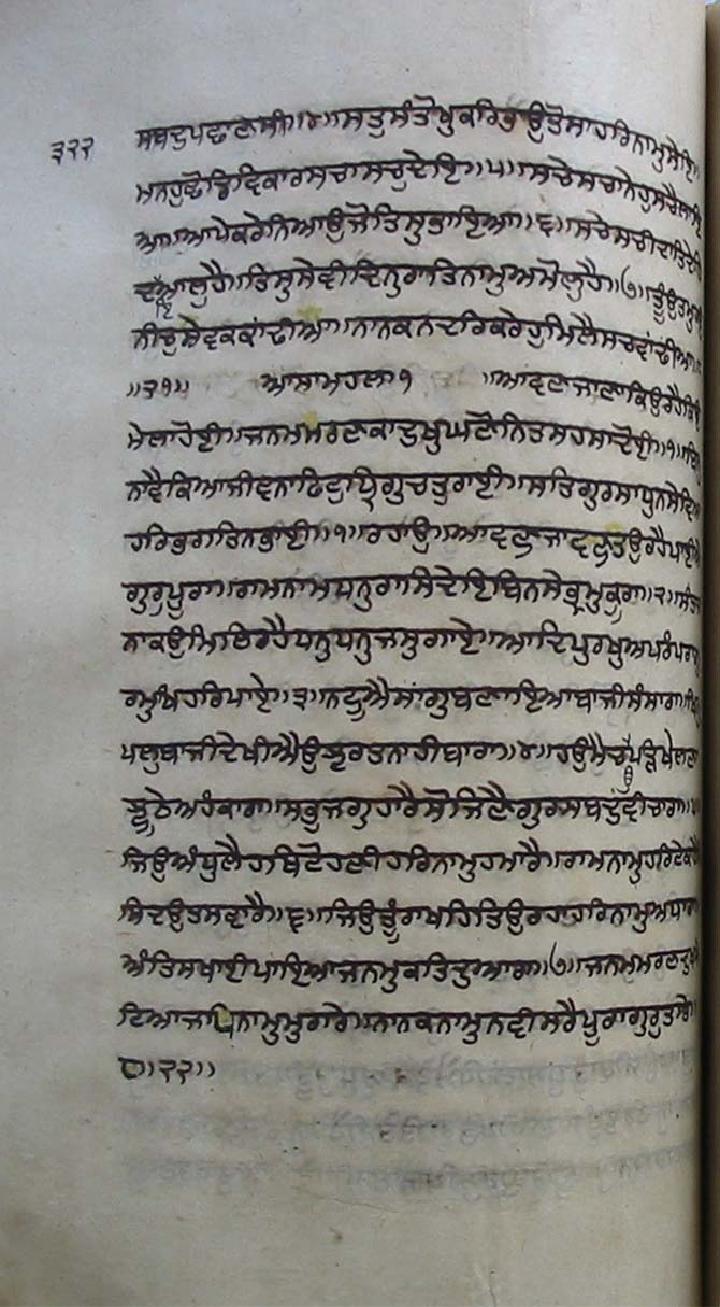 ੩੨੨
ਸਬਦੁਪਛਾਣਸੀ॥੪॥ਸਤੁਸੰਤੋਖੁਕਰਿਭਾਉਤੋਸਾਹਰਿਨਾਮੁਸੇਇ
ਮਨਹੁਛੋਡਿਵਿਕਾਰਸਚਾਸਚੁਦੇਇ॥੫॥ਸਚੇਸਚਾਨੇਹੁਸਚੈਲਾਇ
ਆ॥ਆਪੇਕਰੇਨਿਆਉਜੋਤਿਸੁਭਾਇਆ॥੬॥ਸਚੇਸਚੀਦਾਤਿਦੇਹਿ
ਦਇਆਲੁਹੈ॥ਤਿਸੁਸੇਵੀਦਿਨੁਰਾਤਿਨਾਮੁਅਮੋਲੁਹੈ॥੭॥ਤੂੰਉਤਮੁ
ਨੀਚੁਸੇਵਕਕਾਂਢੀਆ॥ਨਾਨਕਨਦਰਿਕਰੇਹੁਮਿਲੈਸਚਵਾਂਢੀਆ
॥੨੧॥ ਆਸਾਮਹਲਾ੧ ॥ਆਵਣਜਾਣਾਕਿਉਰਹੈਕਿਉ
ਮੇਲਾਹੋਈ॥ਜਨਮਮਰਣਕਾਦੁਖੁਘਣੋਨਿਤਸਹਸਾਦੋਈ॥੧॥ਬਿਨੁ
ਨਾਵੈਕਿਆਜੀਵਨਾਫਿਟੁਧ੍ਰਿਗੁਚਤੁਰਾਈ॥ਸਤਿਗੁਰਸਾਧੁਨਸੇਵਿਆ
ਹਰਿਭਗਤਿਨਭਾਈ॥੧॥ਰਹਾਉ॥ਆਵਣੁਜਾਵਣੁਤਉਰਹੈਪਾਈਐ
ਗੁਰੁਪੂਰਾ॥ਰਾਮਨਾਮਧਨੁਰਾਸਿਦੇਇਬਿਨਸੈਭ੍ਰਮੁਕੂਰਾ॥੨॥ਸੰਤਜ
ਨਾਕਉਮਿਲਿਰਹੈਧਨੁਧਨੁਜਸੁਗਾਏ॥ਆਦਿਪੁਰਖੁਅਪਰੰਪਰਾਗੁ
ਰਮੁਖਿਹਰਿਪਾਏ॥੩॥ਨਟੂਐਸਾਂਗੁਬਣਾਇਆਬਾਜੀਸੰਸਾਰਾ॥ਖਿਨੁ
ਪਲੁਬਾਜੀਦੇਖੀਐਉਝਰਤਨਾਹੀਬਾਰਾ॥੪॥ਹਉਮੈਚਉਪੜਿਖੇਲਣਾ
ਝੂਠੇਅਹੰਕਾਰਾ॥ਸਭੁਜਗੁਹਾਰੈਸੋਜਿਣੈਗੁਰਸਬਦੁਵੀਚਾਰਾ॥੫
ਜਿਉਅੰਧੁਲੈਹਥਿਟੋਹਣੀਹਰਿਨਾਮੁਹਮਾਰੈ॥ਰਾਮਨਾਮੁਹਰਿਟੇਕਹੈ
ਨਿਦਉਤਸਵਾਰੈ॥੬॥ਜਿਉਤੂੰਰਾਖਹਿਤਿਉਰਹਾਹਰਿਨਾਮੁਅਧਾਰਾ
ਅੰਤਿਸਖਾਈਪਾਇਆਜਨਮੁਕਤਿਦੁਆਰਾ॥੭॥ਜਨਮਮਰਣਦੁਖਮੇ
ਟਿਆਜਪਿਨਾਮੁਮੁਰਾਰੇ॥ਨਾਨਕਨਾਮੁਨਵੀਸਰੈਪੂਰਾਗੁਰੁਤਾਰੇ
੮॥੨੨॥